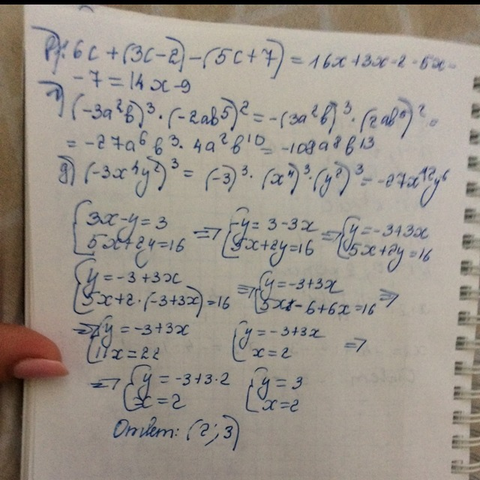 в) 16c + (3c-2) - (5c+7) = 16x+3x-2-5x-
-7 = 14x-9
г) (-3a²b)³ · (-2ab⁵)² = -(3a²b)³ · (2ab⁵)² =
= -27a⁶b³ · 4a²b¹⁰ = -108a⁸b¹³
д) (-3x⁴y²)³ = (-3)³ · (x⁴)³ · (y²)³ = -27x¹²y⁶
{3x-y=3 => {-y=3-3x => {y=-3+3x
{5x+2y=16 {5x+2y=16 {5x+2y=16
{y=-3+3x => {y=-3+3x
{5x+2·(-3+3x)=16 {5x-6+6x=16 =>
=> {y=-3+3x {y=-3+3x
{11x=22 {x=2 =>
=> {y=-3+3·2 {y=3
{x=2 {x=2
Ответ: (2; 3)